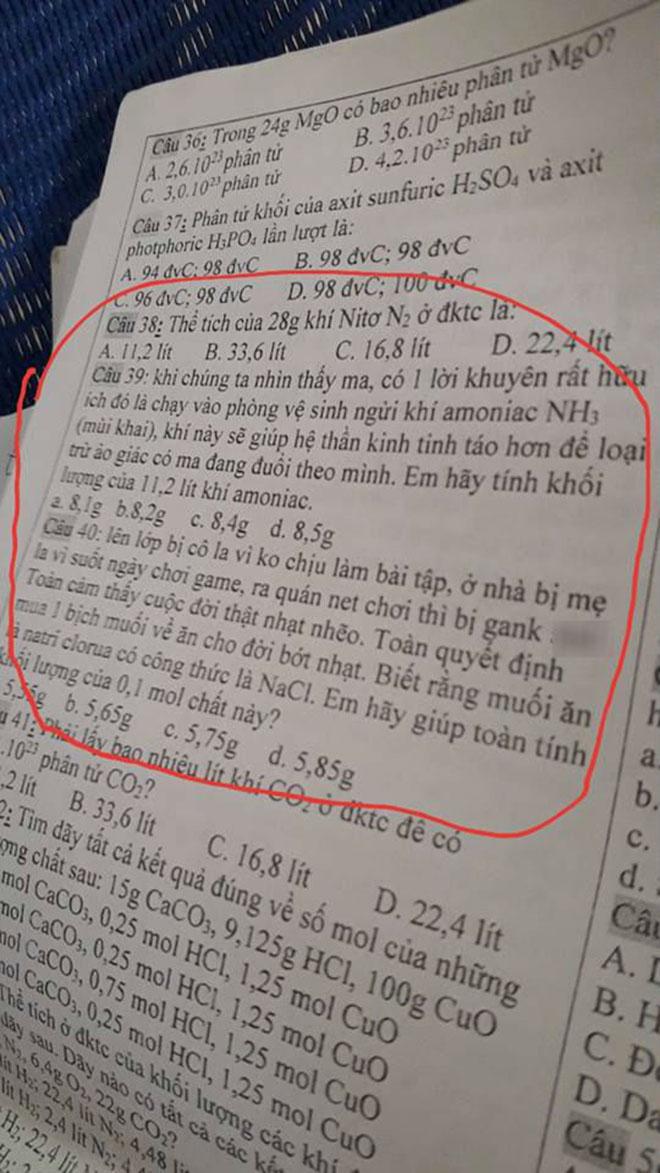 Câu 36: Trong 24g MgO có bao nhiêu phân tử MgO?
A. 2,6.10²³ phân tử B. 3,6.10²³ phân tử
C. 3,0.10²³ phân tử D. 4,2.10²³ phân tử
Câu 37: Phân tử khối của axit sunfuric H₂SO₄ và axit
photphoric H₃PO₄ lần lượt là:
A. 94 đvC; 98 đvC B. 98 đvC; 98 đvC
C. 96 đvC; 98 đvC D. 98 đvC; 100 đvC
Câu 38: Thể tích của 28g khí Nitơ N₂ ở đktc là:
A. 11,2 lít B. 33,6 lít C. 16,8 lít D. 22,4 lít
Câu 39: khi chúng ta nhìn thấy ma, có 1 lời khuyên rất hữu
ích đó là chạy vào phòng vệ sinh ngửi khí amoniac NH₃
(mùi khai), khí này sẽ giúp hệ thần kinh tỉnh táo hơn để loại
trừ ảo giác có ma đang đuổi theo mình. Em hãy tính khối
lượng của 11,2 lít khí amoniac.
a. 8,1g b.8,2g c. 8,4g d. 8,5g
Câu 40: lên lớp bị cô la vì ko chịu làm bài tập, ở nhà bị mẹ
la vì suốt ngày chơi game, ra quán net chơi thì bị gank
Toàn cảm thấy cuộc đời thật nhạt nhẽo. Toàn quyết định
mua 1 bịch muối về ăn cho đời bớt nhạt. Biết rằng muối ăn
là natri clorua có công thức là NaCl. Em hãy giúp toàn tính
khối lượng của 0,1 mol chất này?
5,55g b. 5,65g c. 5,75g d. 5,85g
41: Phải lấy bao nhiêu lít khí CO₂ ở đktc để có
.10²³ phân tử CO₂?
,2 lít B. 33,6 lít C. 16,8 lít D. 22,4 lít
2: Tìm dãy tất cả kết quả đúng về số mol của những
ợng chất sau: 15g CaCO₃, 9,125g HCl, 100g CuO
mol CaCO₃, 0,25 mol HCl, 1,25 mol CuO
mol CaCO₃, 0,25 mol HCl, 1,25 mol CuO
mol CaCO₃, 0,75 mol HCl, 1,25 mol CuO
mol CaCO₃, 0,25 mol HCl, 1,25 mol CuO
Thể tích ở đktc của khối lượng các khí
dãy sau. Dãy nào có tất cả các kết
N₂, 6,4g O₂, 22g CO₂?
lít H₂; 22,4 lít N₂; 4,48
lít H₂; 2,4 lít N₂;
H₂; 22,4 lít
a
b.
c.
d.
Câu
A.
B. H
C.
D.
Câu 5